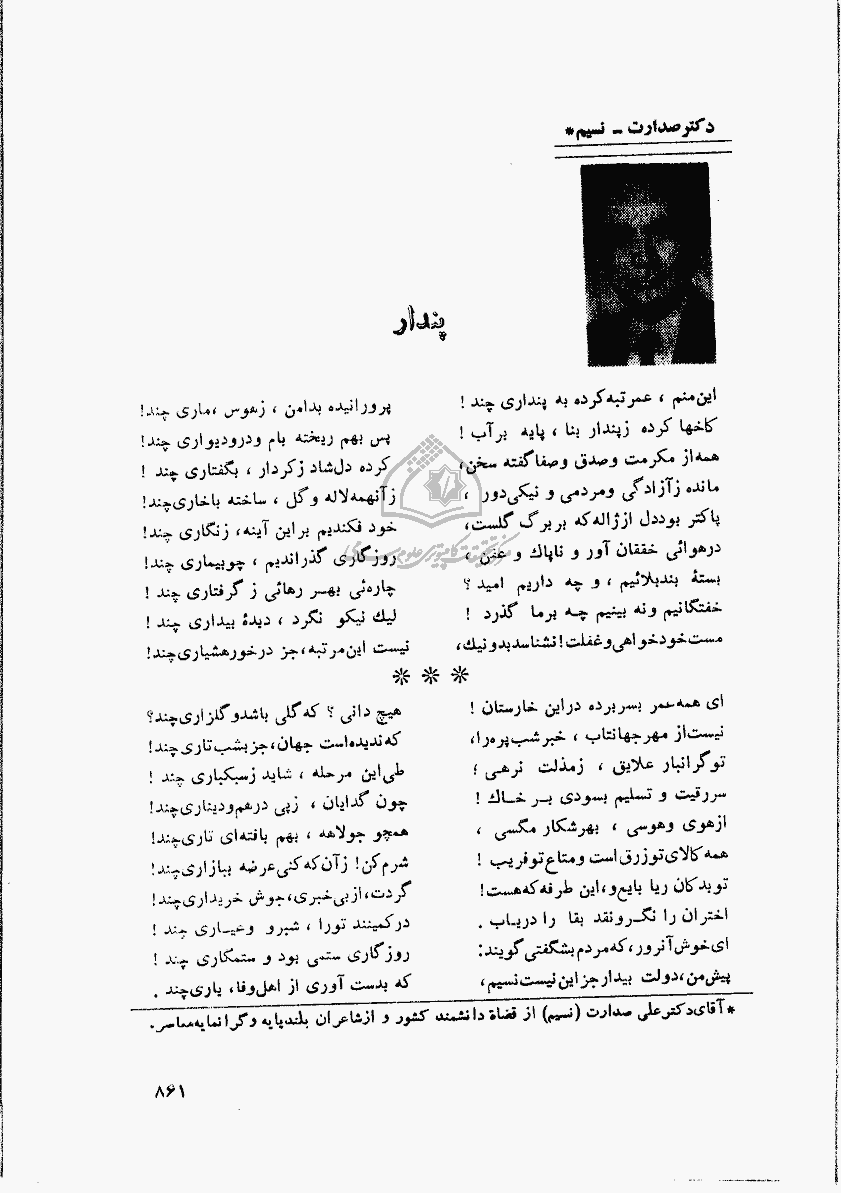 دکتر صدارت - نسیم*
پندار
این منم ، عمر تبه کرده به پنداری چند ! پرورانیده بدامن ، زهوس ، ماری چند!
کاخها کرده زپندار بنا ، پایه برآب ! پس بهم ریخته بام و درودیواری چند!
همه از مکرمت وصدق وصفا گفته سخن، کرده دل شاد زکردار ، بگفتاری چند !
مانده زآزادگی ومردمی و نیکی دور ، زآنهمه لاله وگل ، ساخته باخاری چند!
پاکتر بود دل از ژاله که بر برگ گلست، خود فکندیم بر این آینه، زنگاری چند!
درهوائی خفقان آور و ناپاك و عفن ، روزگاری گذراندیم ، چوبیماری چند!
بستهٔ بند بلائیم ، و چه داریم امید ؟ چاره‌ئی بهر رهائی ز گرفتاری چند !
خفتگانیم ونه بینیم چه برما گذرد ! لیك نیکو نگرد ، دیدهٔ بیداری چند !
مست خودخواهی و غفلت! نشناسد بد و نیك، نیست این مرتبه، جز درخور هشیاری چند!
* * *
ای همه عمر بسر برده دراین خارستان ! هیچ دانی ؟ که گلی باشد و گلزاری چند؟
نیست از مهر جهانتاب ، خبر شب پره را، که ندیده است جهان، جز بشب تاری چند!
تو گرانبار علایق ، زمذلت نرهی ؛ طی این مرحله ، شاید زسبکباری چند !
سر رقیت و تسلیم بسودی بر خاك ! چون گدایان ، زپی درهم و دیناری چند!
ازهوی وهوسی ، بهر شکار مگسی ، همچو جولاهه ، بهم بافته‌ای تاری چند!
همه کالای تو زرق است و متاع تو فریب ! شرم کن! زآن که کنی عرضه ببازاری چند!
تو بدکان ریا بایع و، این طرفه که هست! گردت، از بی خبری، جوش خریداری چند!
اختران را نگر و نقد بقا را دریاب . درکمینند تورا ، شبرو وعیاری چند !
ای خوش آنروز، که مردم بشگفتی گویند: روزگاری ستمی بود و ستمکاری چند !
پیش من، دولت بیدار جز این نیست نسیم، که بدست آوری از اهل وفا، یاری چند .
* آقای دکتر علی صدارت (نسیم) از قضاة دانشمند کشور و ازشاعران بلندپایه وگرانمایه معاصر.
۸۶۱